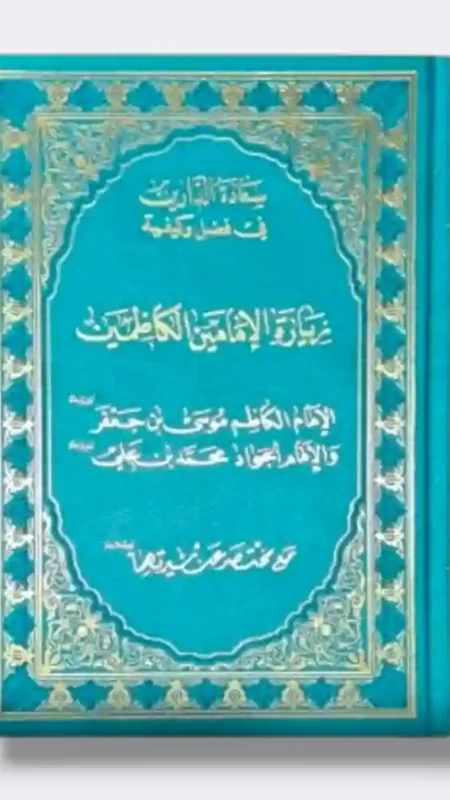 سعادة الدارين
في فضل وكيفية
زيارة الإمامين الكاظمين
الإمام الكاظم موسى بن جعفر
والإمام الجواد محمد بن علي
مع مختصر عن سيرتهما